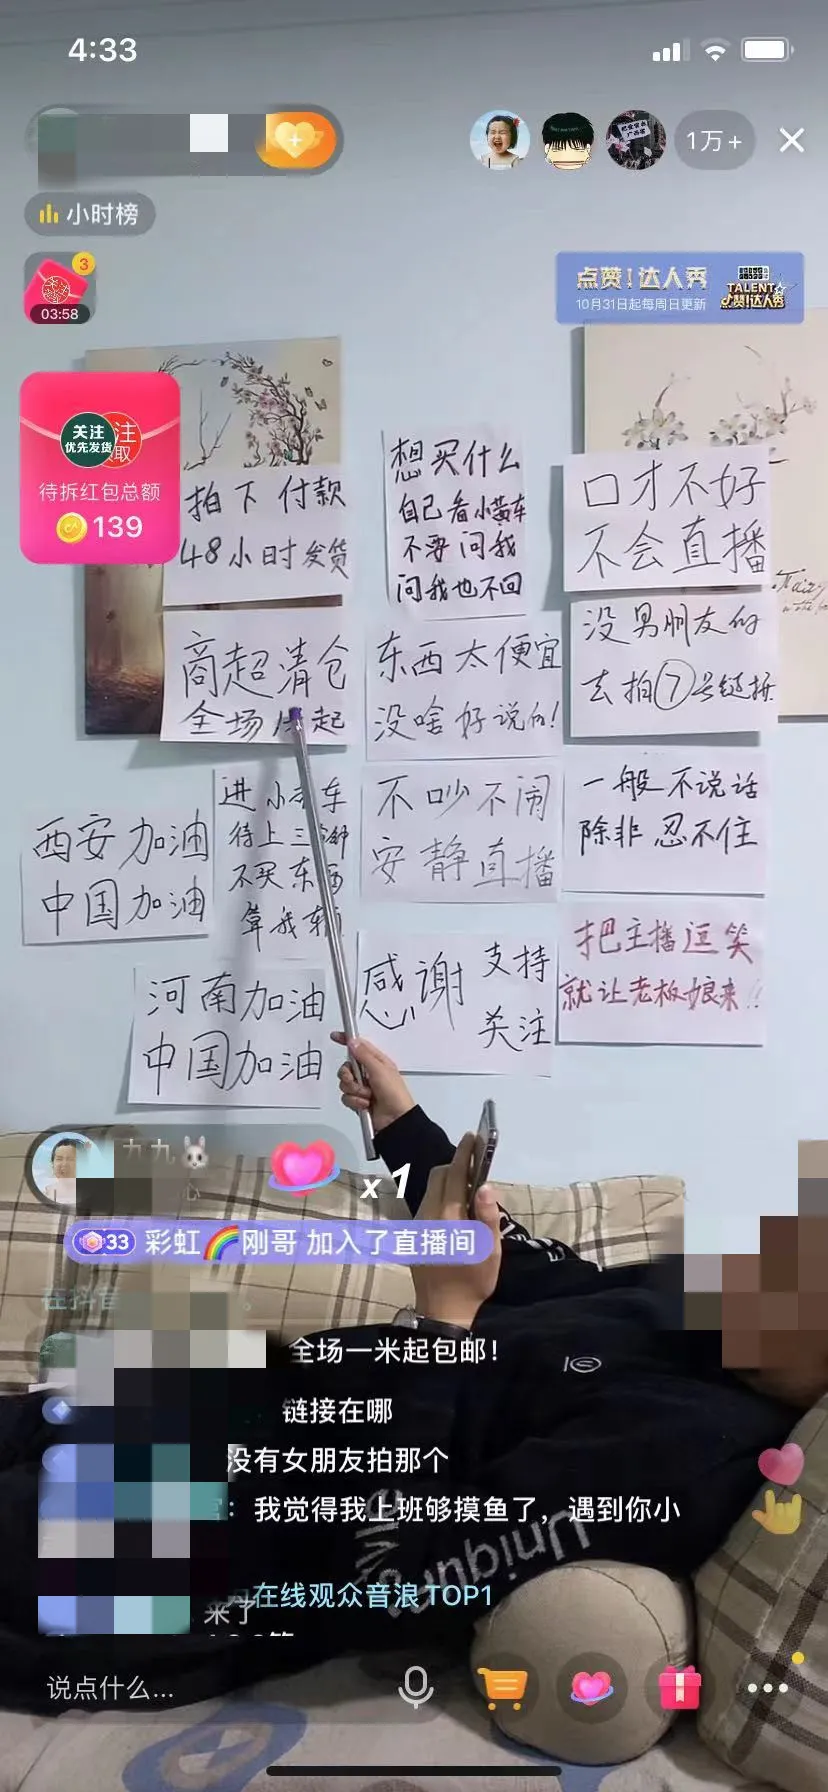 4:33
1万+
小时榜
3
03:58
点赞!达人秀
10月31日起每周日更新
TALENT
点赞!达人秀
关注
优先发货
注
取
待拆红包总额
139
拍下付款
48小时发货
想买什么
自己看小黄车
不要问我
问我也不回
口才不好
不会直播
商超清仓
全场 起
东西太便宜
没啥好说的!
没男朋友的
去拍⑦号链接
西安加油
中国加油
进小 车
待上三 钟
不买东西
算我输
不吵不闹
安静直播
一般不说话
除非忍不住
河南加油
中国加油
感谢
支持
关注
把主播逗笑
就让老板娘来!!
九九
x1
33 彩虹🌈刚哥 加入了直播间
在抖音
全场一米起包邮!
链接在哪
没有女朋友拍那个
:我觉得我上班够摸鱼了,遇到你小
为在线观众音浪TOP1
来了
说点什么...